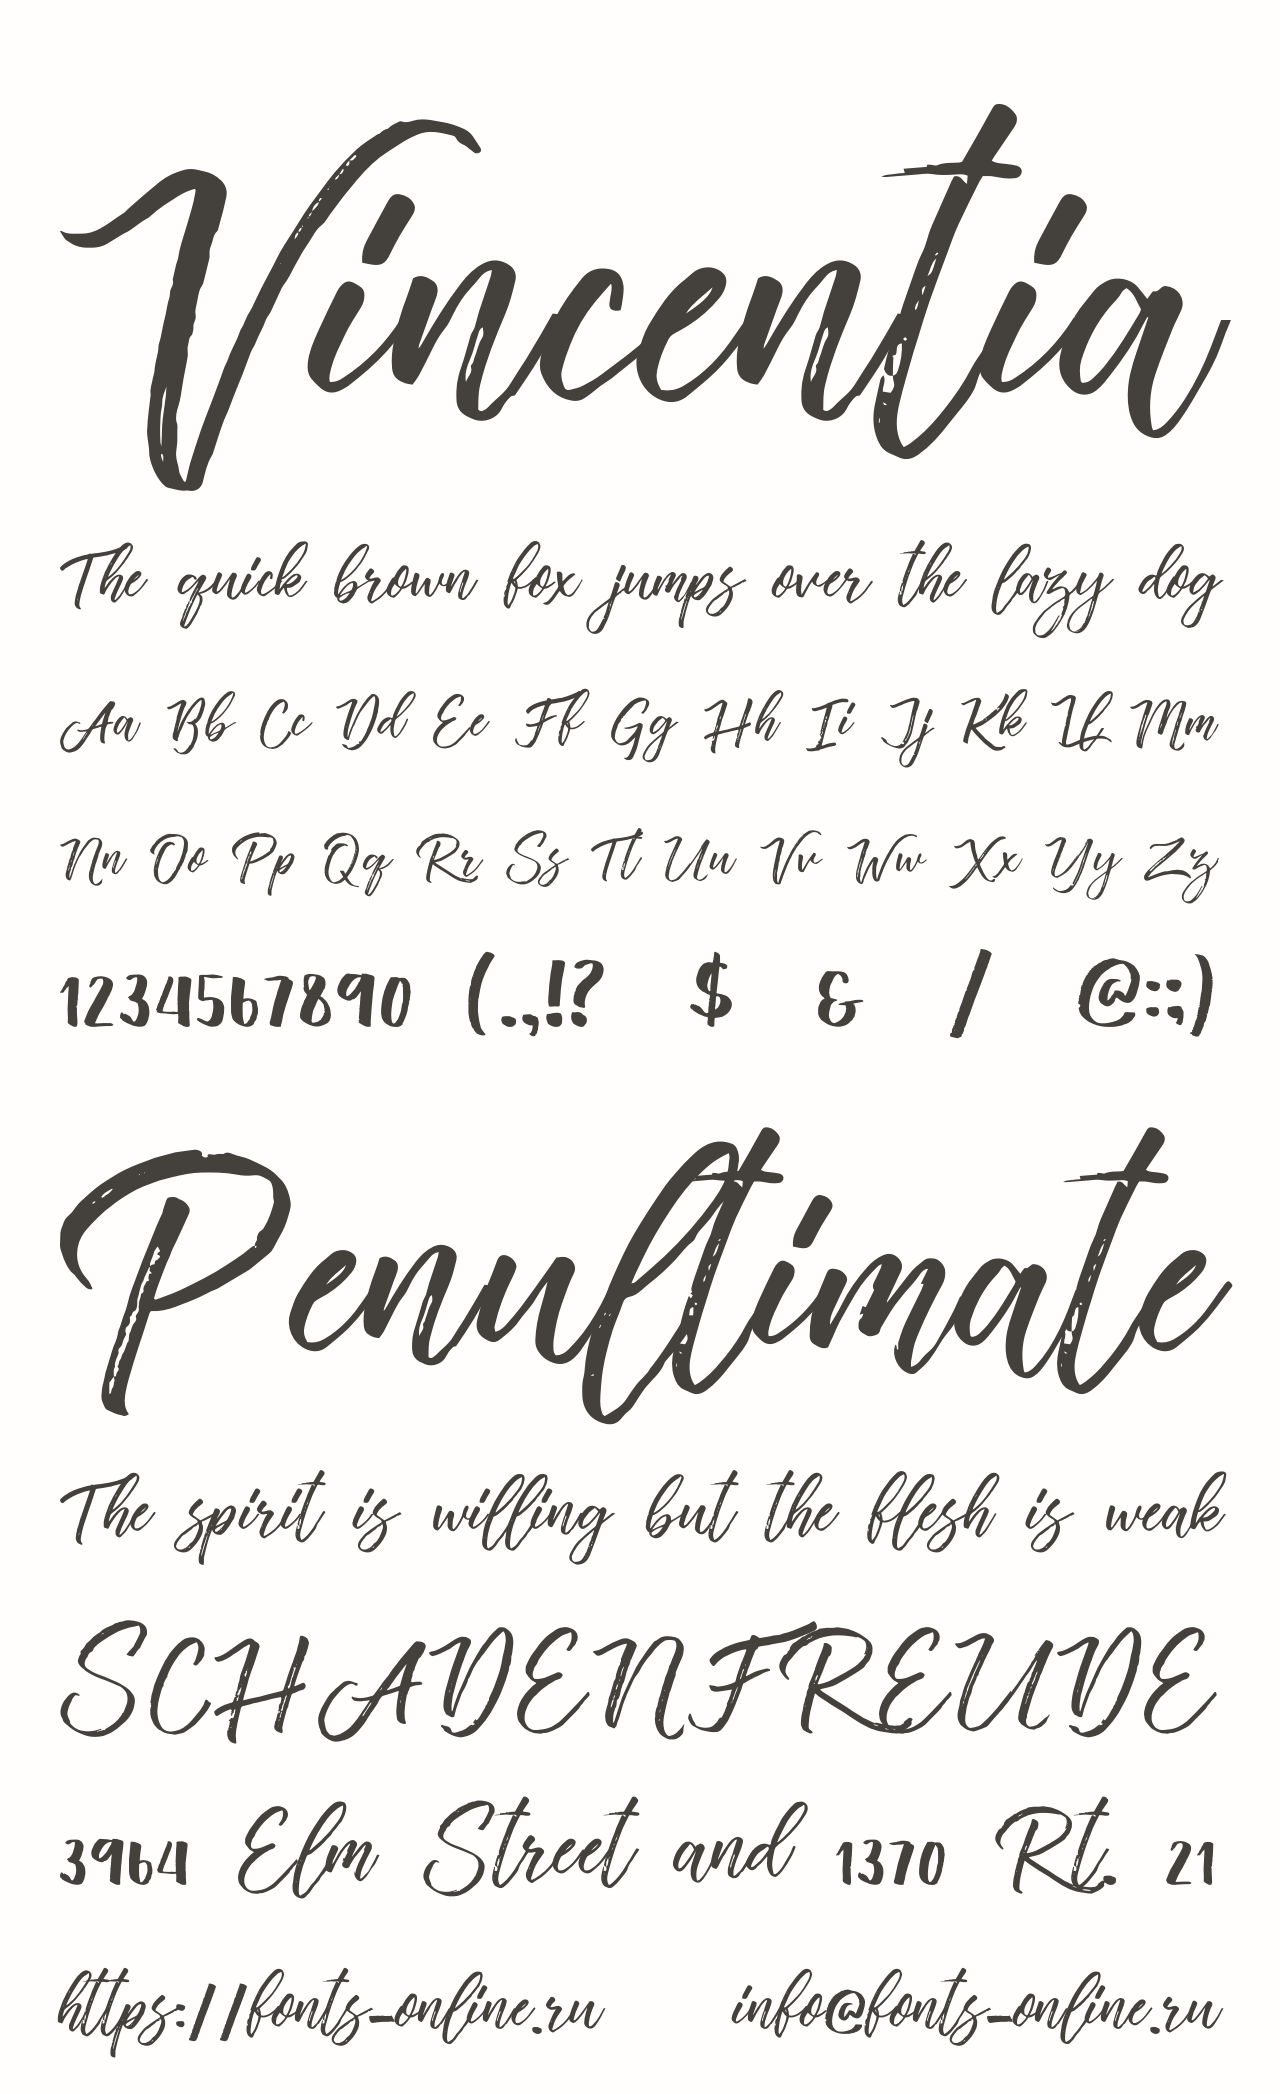 Vincentia
The quick brown fox jumps over the lazy dog
Aa Bb Cc Dd Ee Ff Gg Hh Ii Jj Kk Ll Mm
Nn Oo Pp Qq Rr Ss Tt Uu Vv Ww Xx Yy Zz
1234567890 (.,!? $ & / @:;)
Penultimate
The spirit is willing but the flesh is weak
SCHADENFREUDE
3964 Elm Street and 1370 Rt. 21
https://fonts-online.ru info@fonts-online.ru